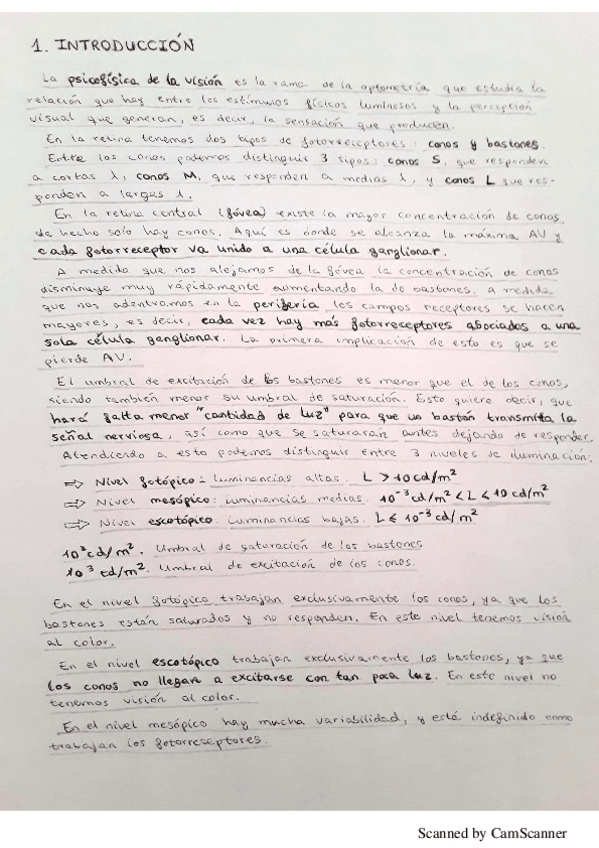 1. INTRODUCCIÓN
La psicofísica de la visión es la rama de la optometría que estudia la
relación que hay entre los estímulos físicos luminosos y la percepción
visual que generan, es decir, la sensación que producen.
En la retina tenemos dos tipos de fotorreceptores: conos y bastones.
Entre los conos podemos distinguir 3 tipos: conos S, que responden
a cortas λ, conos M, que responden a medias λ, y conos L que res-
ponden a largas λ.
En la retina central (fóvea) existe la mayor concentración de conos,
de hecho solo hay conos. Aquí es donde se alcanza la máxima AV y
cada fotorreceptor va unido a una célula ganglionar.
A medida que nos alejamos de la fóvea la concentración de conos
disminuye muy rápidamente aumentando la de bastones. A medida
que nos adentramos en la periferia los campos receptores se hacen
mayores, es decir, cada vez hay más fotorreceptores abociados a una
sola célula ganglionar. La primera implicación de esto es que se
pierde AV.
El umbral de excitación de los bastones es menor que el de los conos,
siendo también menor su umbral de saturación. Esto quiere decir, que
hará falta menor "cantidad de luz" para que un bastón transmita la
señal nerviosa, así como que se saturarán antes dejando de responder.
Atendiendo a esto podemos distinguir entre 3 niveles de iluminación:
⇒ Nivel fotópico: luminancias altas. L > 10 cd/m²
⇒ Nivel mesópico: luminancias medias. 10⁻³ cd/m² < L < 10 cd/m²
⇒ Nivel escotópico: luminancias bajas. L ≤ 10⁻³ cd/m²
cd/m². Umbral de saturación de los bastones
cd/m². Umbral de excitación de los conos.
En el nivel fotópico trabajan exclusivamente los conos, ya que los
bastones están saturados y no responden. En este nivel tenemos visión
al color.
En el nivel escotópico trabajan exclusivamente los bastones, ya que
los conos no llegan a excitarse con tan poca luz. En este nivel no
tenemos visión al color.
En el nivel mesópico hay mucha variabilidad, y está indefinido como
trabajan los fotorreseptores.
Scanned by CamScanner